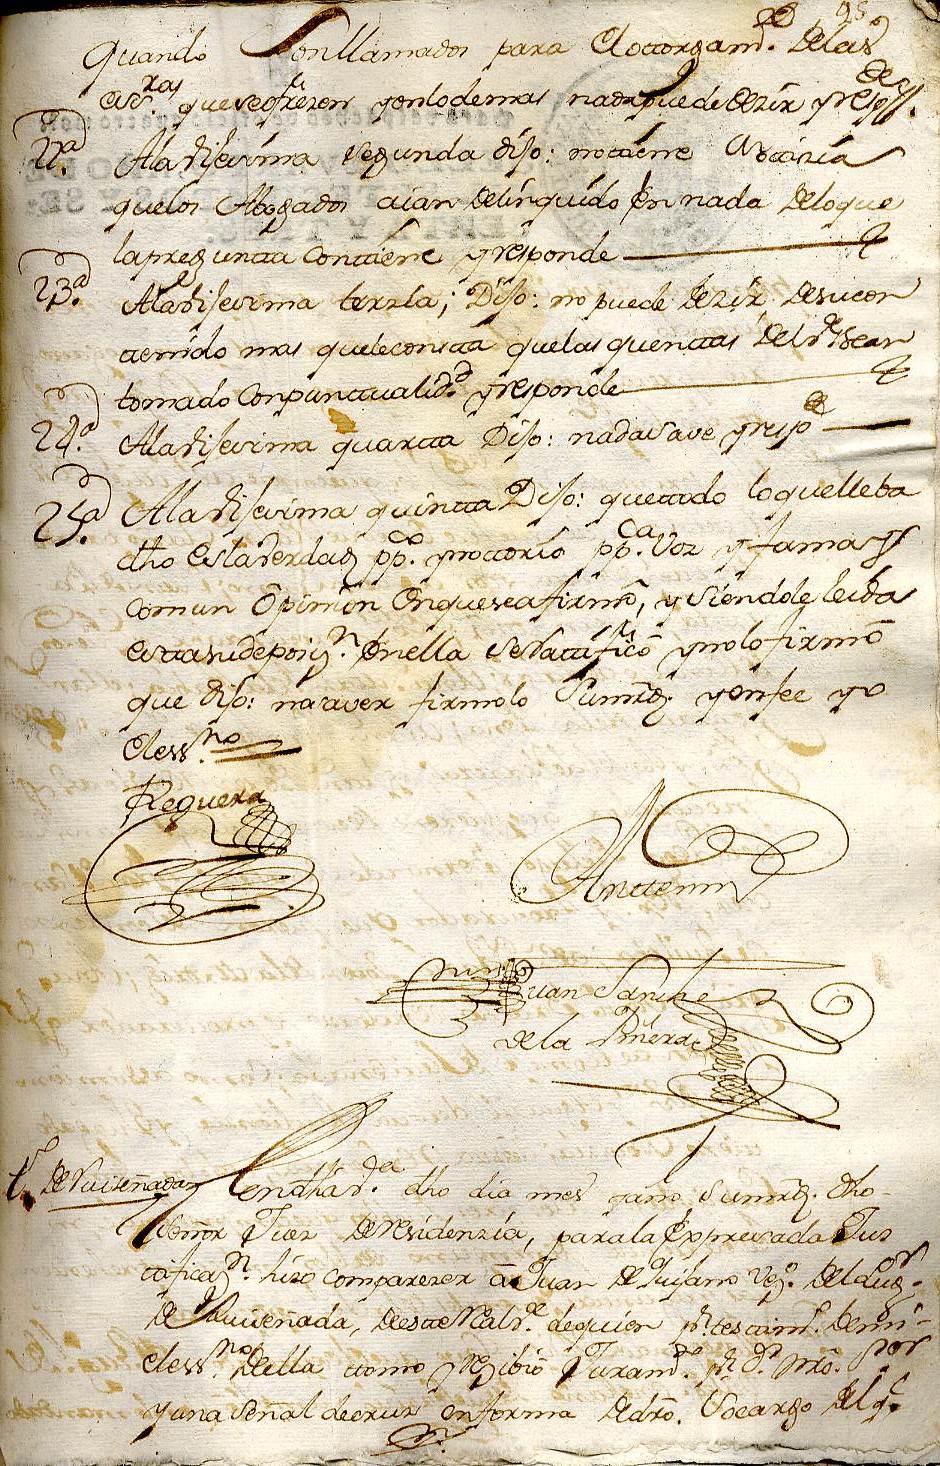 Quando son llamados para el ottorgam.to de las
ess.ras que se ofrezen y en lo demas nada puede dezir y resp.de
22.a A la disesima segunda dijo: no ttiene notizia
que los Abogados aian delinquido en nada de lo que
la preguntta conttiene y responde
23.a A la disesima terzia; Dijo: no puede dezir de su con
ttenido mas que le constta que las quenttas del se an
tomado con punttualid.d y responde
24.a A la disesima quartta Dijo: nada save y resp.de
25.a A la disesima quintta Dijo: que ttodo lo que lleba
dho es la verdad pp.co y nottorio pp.ca voz y fama y
comun opinion en que se afirmó, y siendole leida
estta su deposiz.n en ella se rattificó y no lo firmó
que dijo: no saver firmolo su mrd. y en fee yo
el ess.no
Reguera
Antte mi
Juan Sanche
de la
t.o De Suiseñada
En dha dho dia mes y año su mrd. dho
señor Juez de residenzia, para la expresada Jus
tificaz.n hizo comparezer á Juan de vez.o del lug.r
de Suiseñada, de estte Valle de quien p.r testtim.o de mi
el ess.no della ttomo y rezibió Juram.to p.r D.s nro. s.or
y una señal de cruz en forma de dro. so cargo del q.e